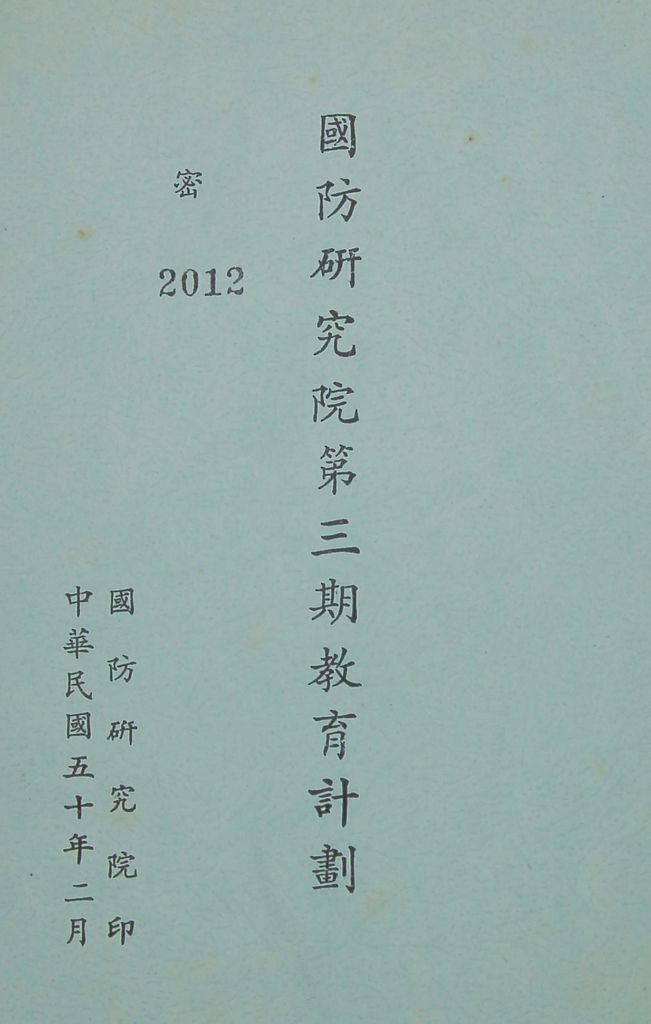 國防研究院第三期教育計劃
密
2012
國防研究院印
中華民國五十年二月